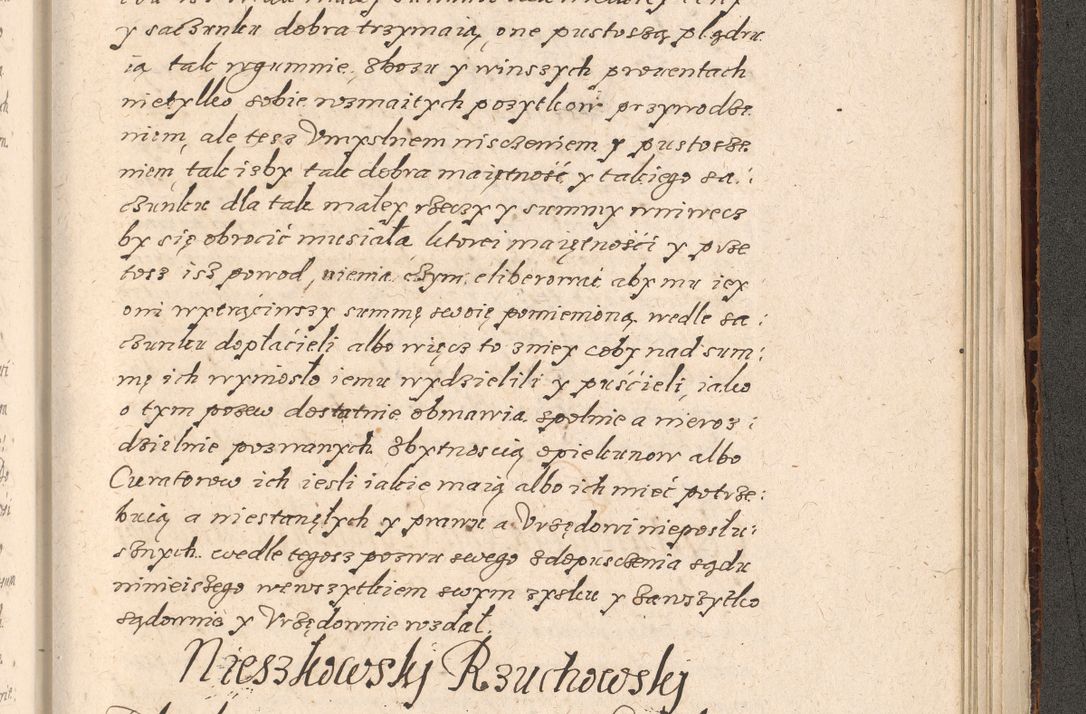 y saczunku dobra trzymaią, one pustoszą plądru
ią tak wgumnie, zbozu y winszych prouentach
nietylko sobie rozmaitych pozytkow przywodze
niem, ale tesz Vmyslnem nisczeniem y pustosze
niem, tak isby tak dobra maiętność y takiego sa:
czunku dla tak małey rzeczy y summy wniwecz
by się obrocić musiała ktorei maiętności y prze
tosz isz powod, niema czym eliberować aby mu iey
oni wytrąciwszy summę swoię pomienioną wedle sa:
czunku dopłacieli albo więcz to zniey coby nad sum:
mę ich wyniosło iemu wydzielili y puścieli, iako
o tym pozew dostatnie obmawia. spolnie a nieroz:
dzielnie pozwanych zbytnoscią opiekunow albo
Curatorow ich iesli iakie maią albo ich mieć potrze:
buią a niestanęłych y prawu a Vrzędowi nieposłu:
sznych wedle tegosz pozwu swego zdopuszczenia sądu
ninieiszego wewszytkiem swym zysku y zawszytko
sądownie y Vrzędownie wzdał.
Nieszkowskj Rzuchowskj